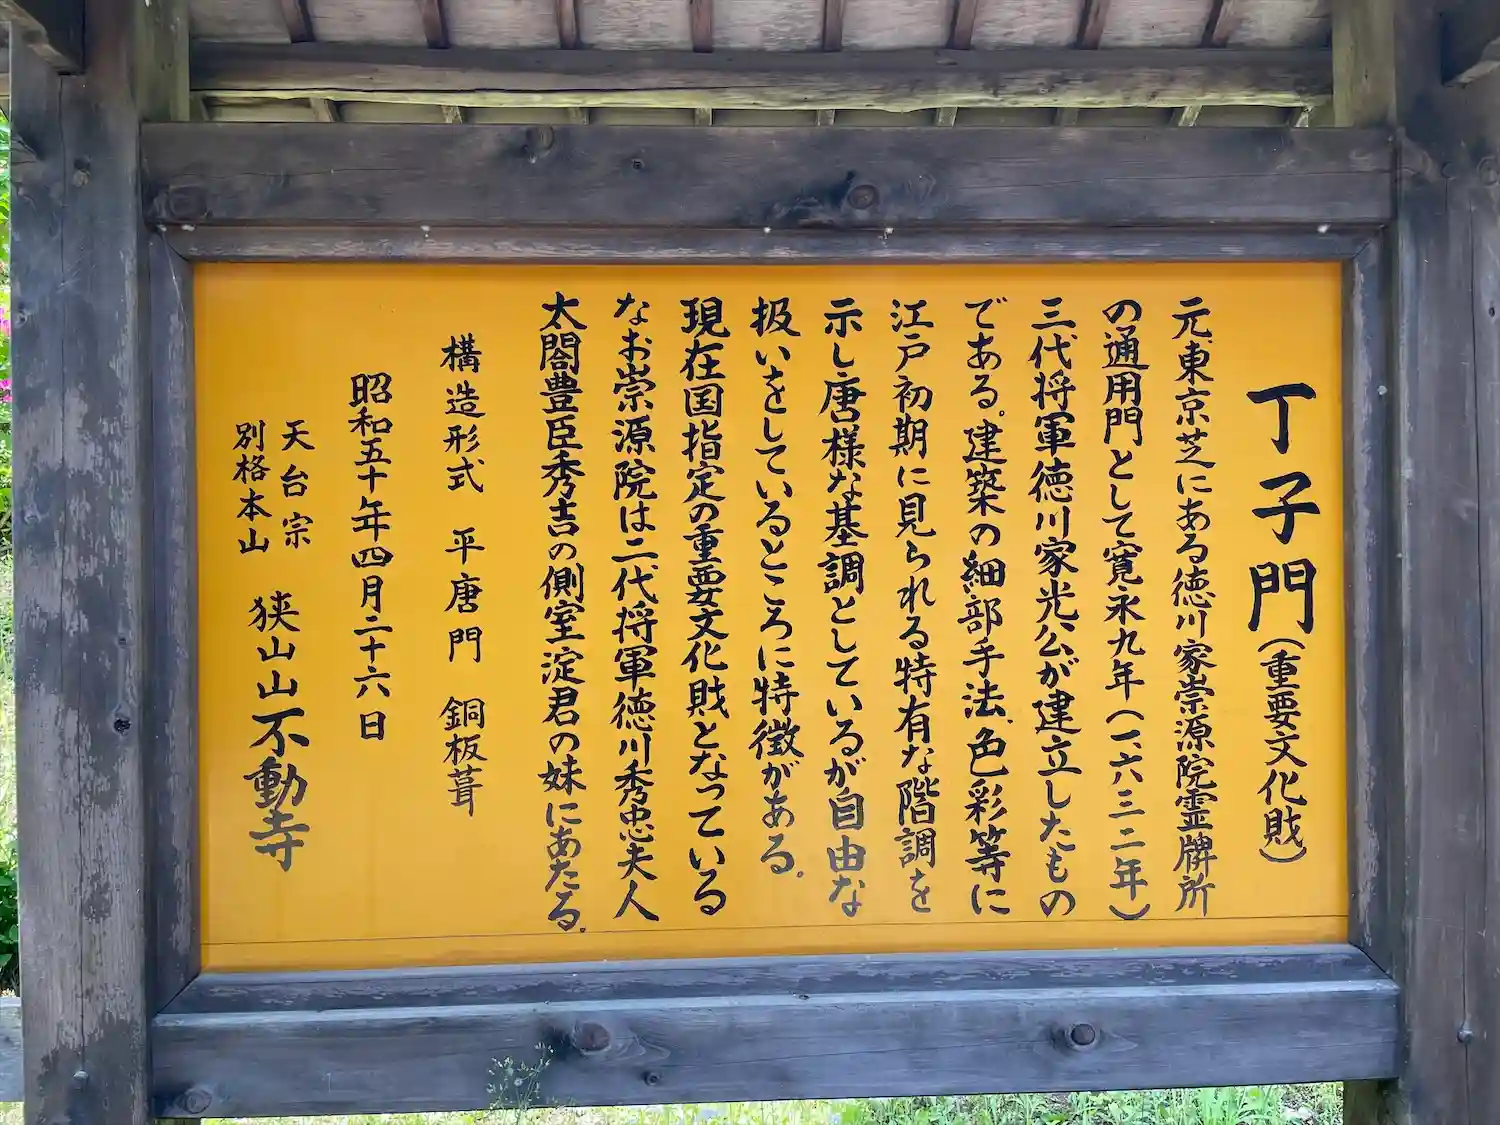 丁子門(重要文化財)
元、東京芝にある徳川家崇源院霊牌所
の通用門として寛永九年(一六三二年)
三代将軍徳川家光公が建立したもの
である。建築の細部手法、色彩等に
江戸初期に見られる特有な階調を
示し唐様な基調としているが自由な
扱いをしているところに特徴がある。
現在国指定の重要文化財となっている
なお崇源院は二代将軍徳川秀忠夫人
太閤豊臣秀吉の側室淀君の妹にあたる。
構造形式 平唐門 銅板葺
昭和五十年四月二十六日
天台宗
別格本山 狭山山不動寺